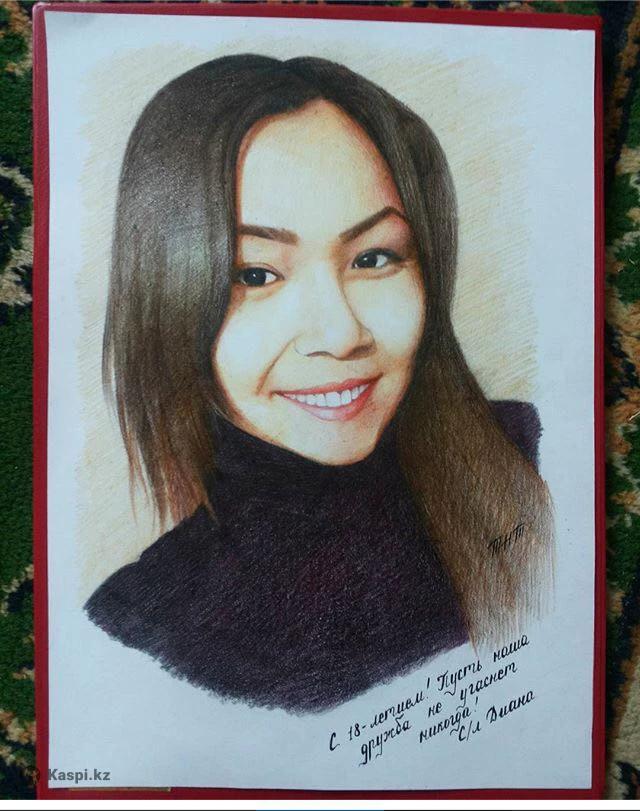 ТНТ
С 18-летием! Пусть наша
дружба не угаснет
никогда!
С/л Диана
Kaspi.kz